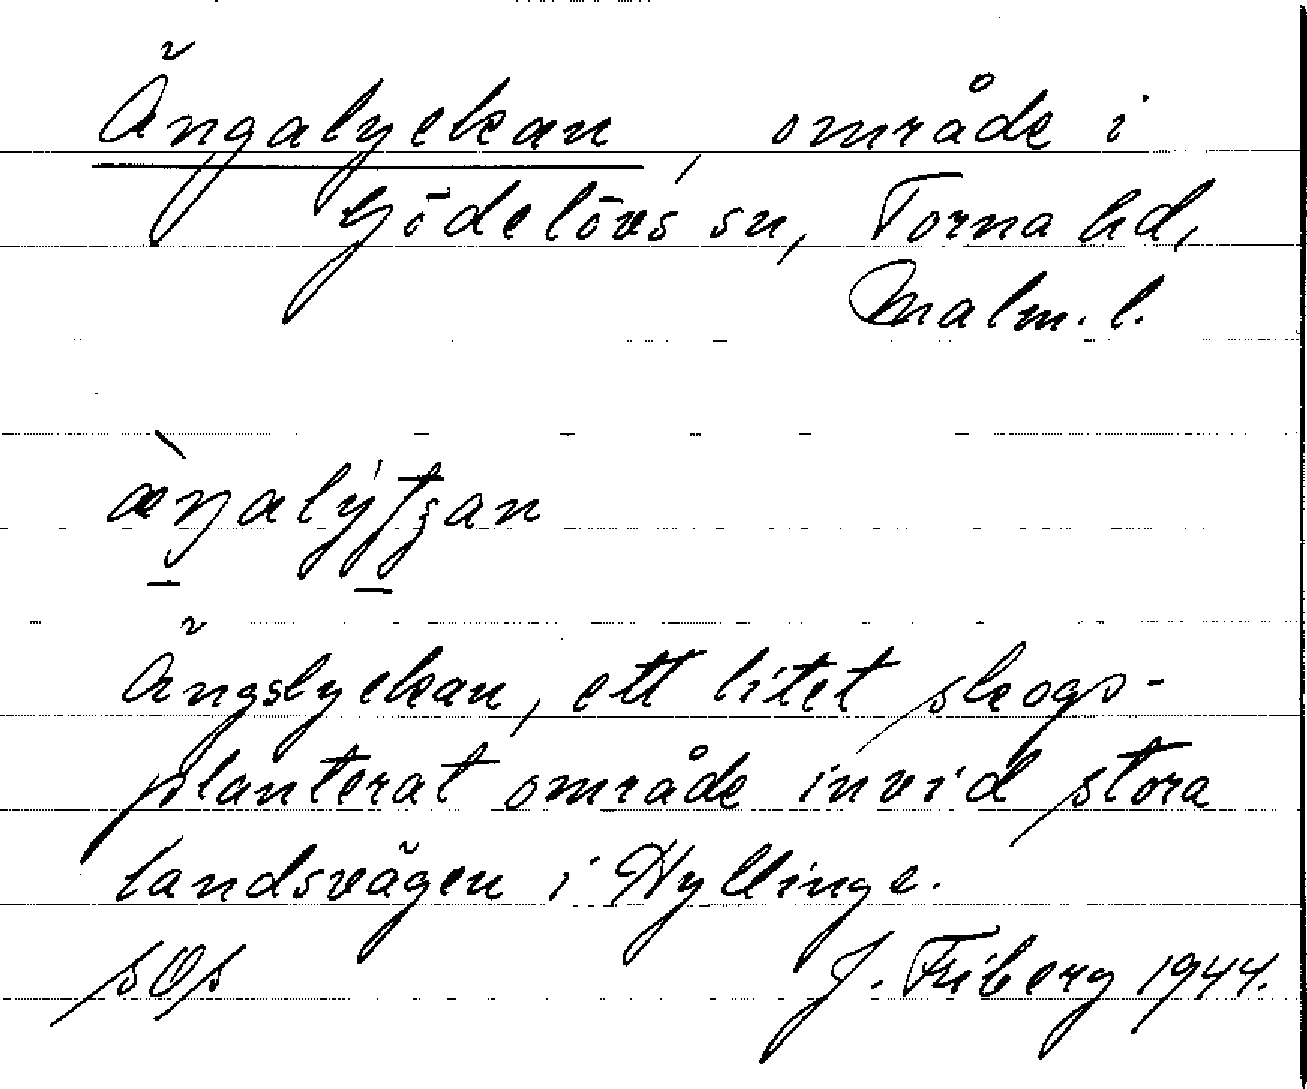 Ängalyckan, område i
Gödelövs sn, Torna hd,
Malm. l.
Ängslyckan, ett litet skogs-
planterat område invid stora
landsvägen i Hyllinge.
J. Friberg 1944.